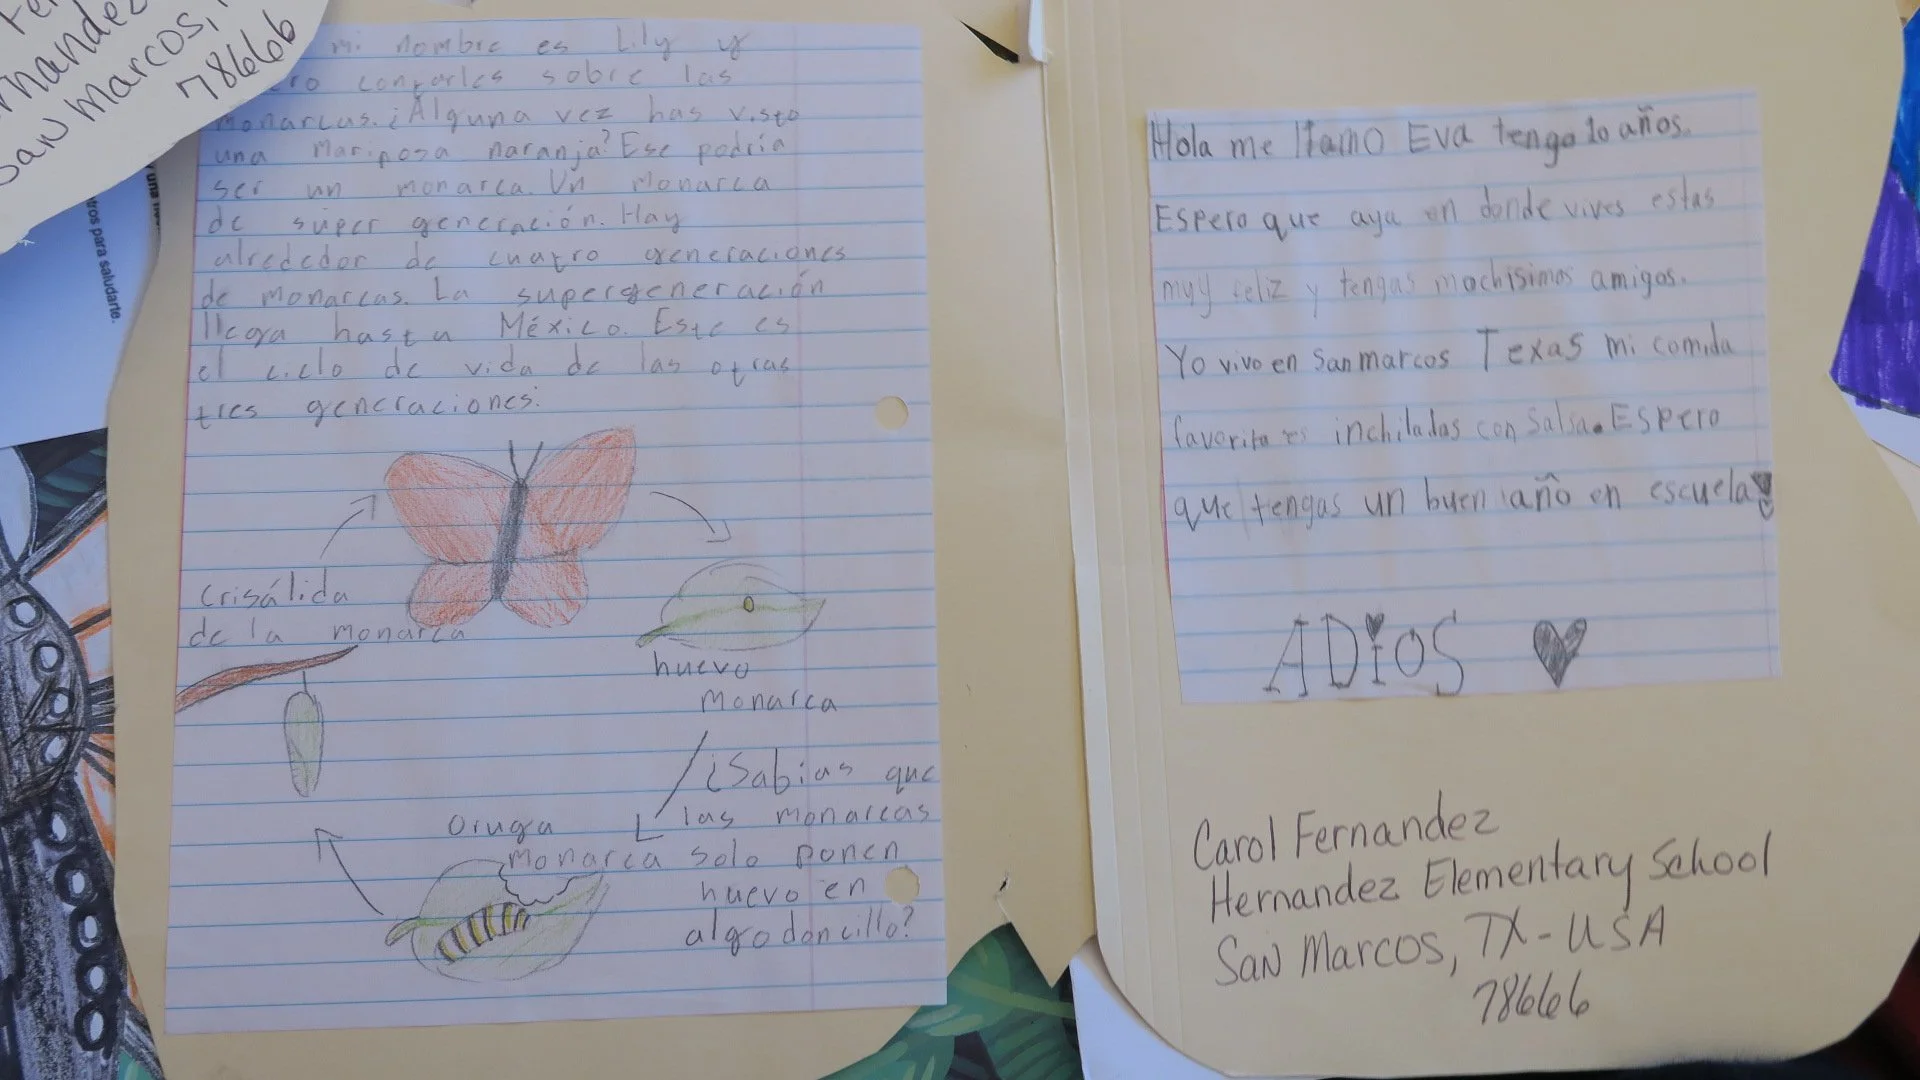 mi nombre es Lily y
contarles sobre las
monarcas. ¿Alguna vez has visto
una mariposa naranja? Ese podría
ser un monarca. Un monarca
de súper generación. Hay
alrededor de cuatro generaciones
de monarcas. La supergeneración
llega hasta México. Este es
el ciclo de vida de las otras
tres generaciones:
crisálida
de la monarca
huevo
monarca
¿Sabías que
las monarcas
solo ponen
huevo en
algodoncillo?
Oruga
monarca
Hola me llamo Eva tengo 10 años.
Espero que aya en donde vives estas
muy feliz y tengas mochisimos amigos.
Yo vivo en San marcos Texas mi comida
favorita es inchiladas con salsa. Espero
que tengas un buen año en escuela
ADiOS
Carol Fernandez
Hernandez Elementary School
San Marcos, TX - USA
78666
San Marcos,
78666
tros para saludarte.